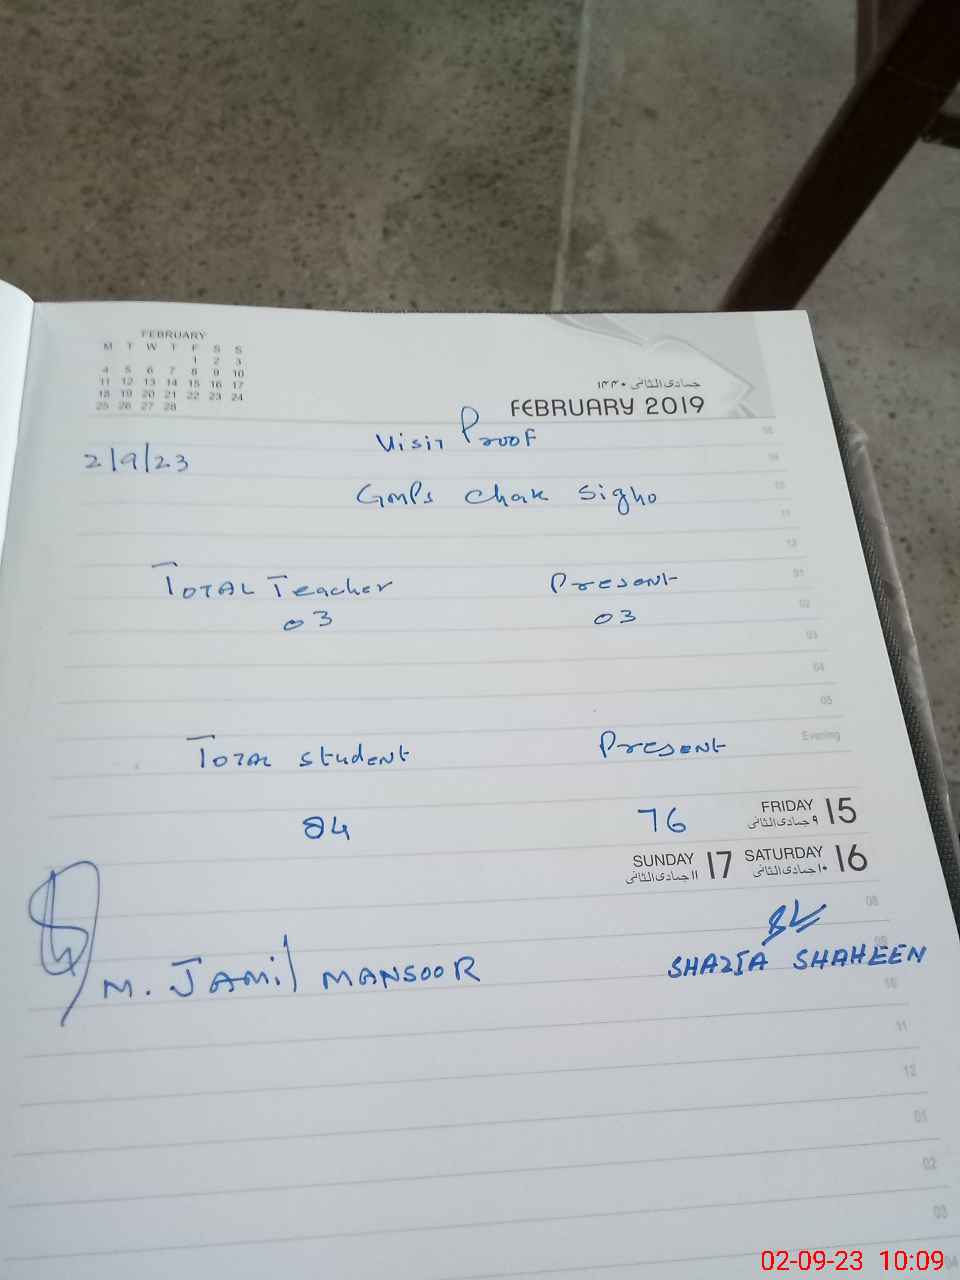 FEBRUARY
M T W T F S S
1 2 3
4 5 6 7 8 9 10
11 12 13 14 15 16 17
18 19 20 21 22 23 24
25 26 27 28
جمادى الثانى ١٤٤٠
FEBRUARY 2019
Visit Proof
2/9/23
GMPS Chak Sigho
Total Teacher Present
03 03
Total Student Present
84 76
08
09
10
11
12
01
02
03
04
05
Evening
FRIDAY 15
٩ جمادى الثانى
SUNDAY 17 SATURDAY 16
١١ جمادى الثانى ١٠ جمادى الثانى
M. JAMil MANSOOR
SHAZIA SHAHEEN
08
09
10
11
12
01
02
03
04
02-09-23 10:09